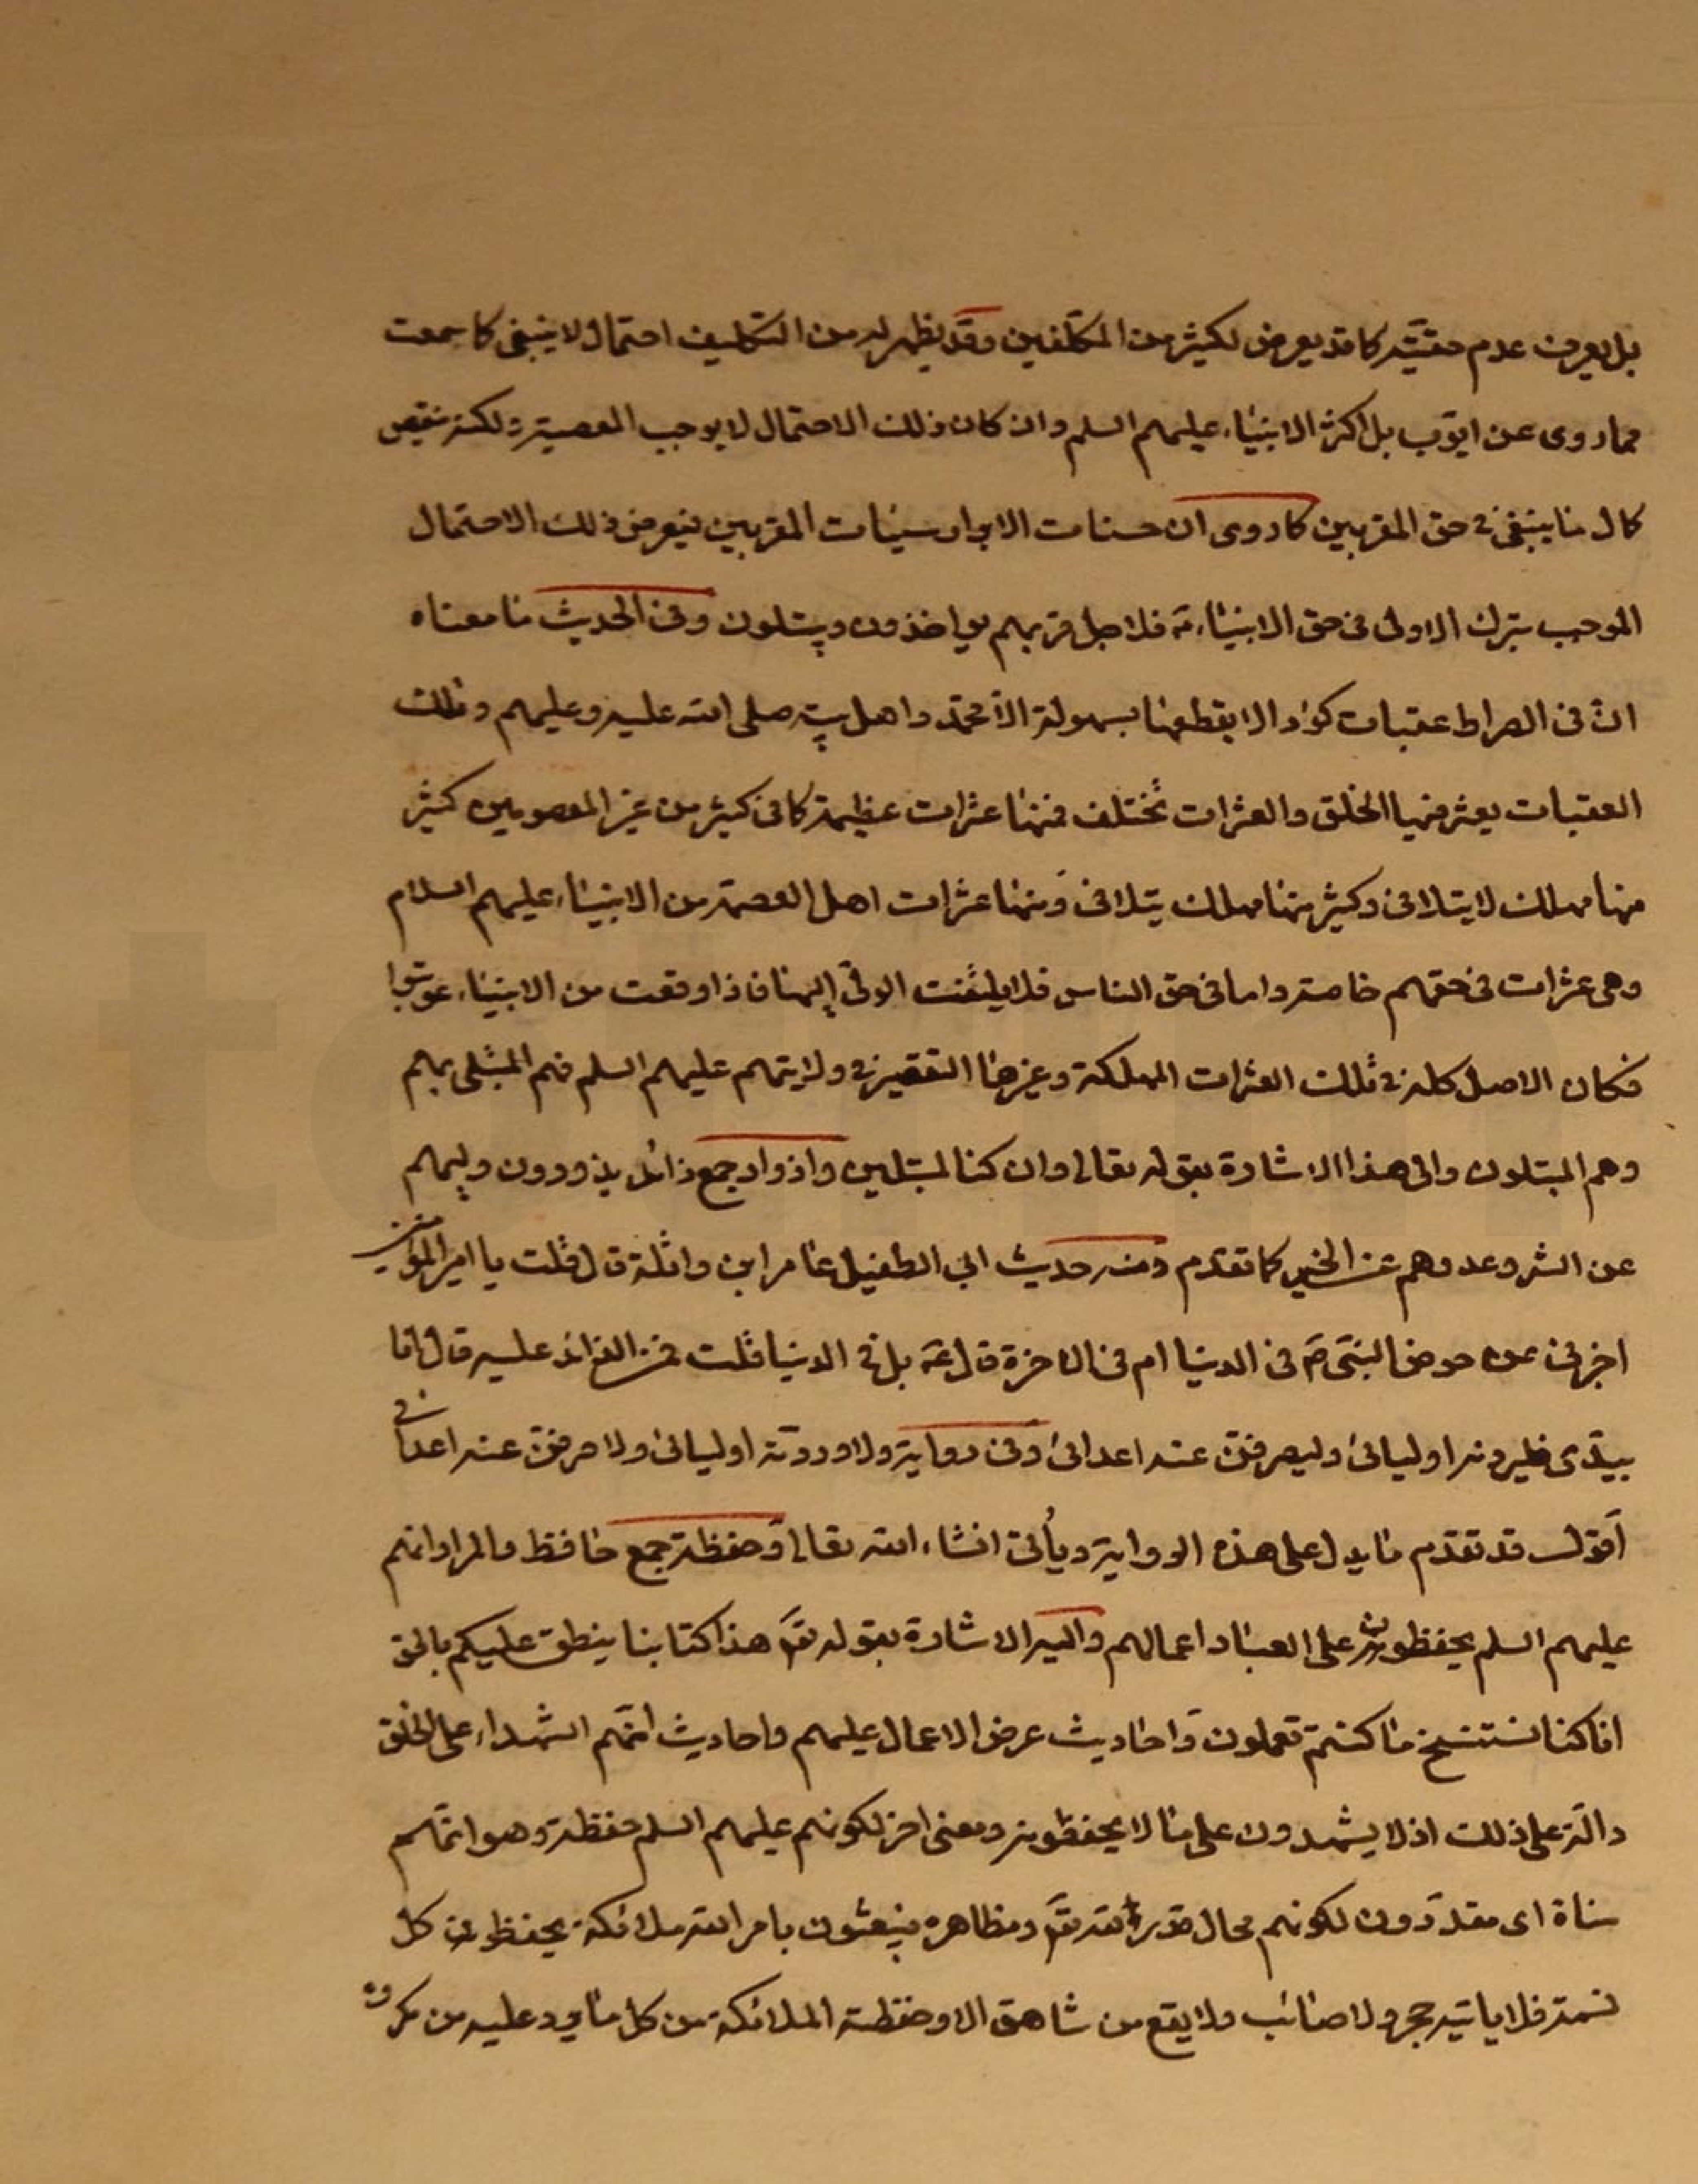 بل يعرف عدم حقيّته كما قد يعرض لكثير من المكلّفين وقد يظهر له من التكليف احتمال لا ينبغي كما سمعت
مما روى عن ايّوب بل اكثر الانبيٰاء عليهم السلم وان كان ذلك الاحتمال لا يوجب المعصية ولكنه نقيص
كمال مٰا ينبغي في حق المقربين كما روى ان حسنات الابرار سيئات المقربين فيعرض ذلك الاحتمال
الموجب بترك الاولى في حق الانبيٰاء ع فلاجل قربهم يواخذون ويبتلون وفى الحديث مٰا معناه
انّ في الصراط عقبات كوٰاد الا يقطعهٰا بسهولة الّا محمّد واهل بيته صلى الله عليه وعليهم وتلك
العقبات يعثر فيها الخلق والعثرات تختلف فمنهٰا عثرات عظيمة كما في كثير من غير المعصومين كثير
منهٰا مهلك لا يتلافى وكثير منهٰا مهلك يتلافى وَمنهٰا عثرات اهل العصمة من الانبيٰاء عليهم السلام
وهى عثرات في حقهم خاصة واما في حق الناس فلا يلتفت الولىّ اليهٰا فاذا وقعت من الانبيٰاء عوتبوا
فكان الاصل كله في تلك العثرات المهلكة وغيرهٰا التقصير في ولايتهم عليهم السلم فهم المبتلى بهم
وهم المبتلون والى هذا الاشارة بقوله تعالى وان كنا لمبتلين واذواد جمع ذائد يذودون وليهم
عن الشر وعدوهم عن الخير كما تقدم ومنه حديث ابي الطفيل عٰامر ابن واثلة قال قلت يا امير المؤمنين
اخبرني عن حوض النبيّ صَ فى الدنيا ام فى الاخرة قال عَ بل في الدنيا قلت فمن الذائد عليه قال انا
بيدى فليردنه اوليائى وليصرفنّ عنه اعدائى وفى رواية ولاوردنّه اوليائى ولاصرفنّ عنه اعدائي
اَقول قد تقدّم مٰا يدل على هذه الرواية ويأتى انشاء الله تعالى وَحفظة جمع حٰافظ والمراد انهم
عليهم السلم يحفظون على العبٰاد اعمالهم واليه الاشارة بقوله تعَ هذا كتابنا ينطق عليكم بالحق
انا كنا نستنسخ مٰا كنتم تعملون وَاحٰاديث عرض الاعمال عليهم واحاديث انّهم الشهداء على الخلق
دالّة على ذلك اذ لا يشهدون على مٰا لا يحفظونه ومعنى اخر لكونهم عليهم السلم حفظة وهو انّهم
مناة اى مقدّرون لكونهم محال قدرة الله تعَ ومظاهره ينبعثون بامر الله ملائكة يحفظون كل
نسمة فلا ياتيه حجر ولا صٰائب ولا يقع من شاهق الا وحفظته الملائكة من كل مٰا يرد عليه من مكروه